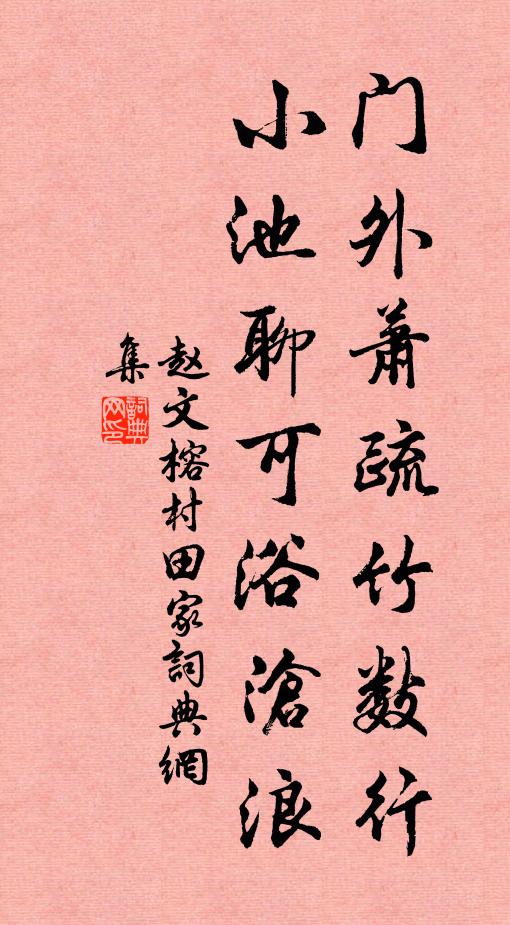 门外萧疏竹数行
小池聊可浴滄浪
赵文榕村田家詞典網
集
詞典
网印